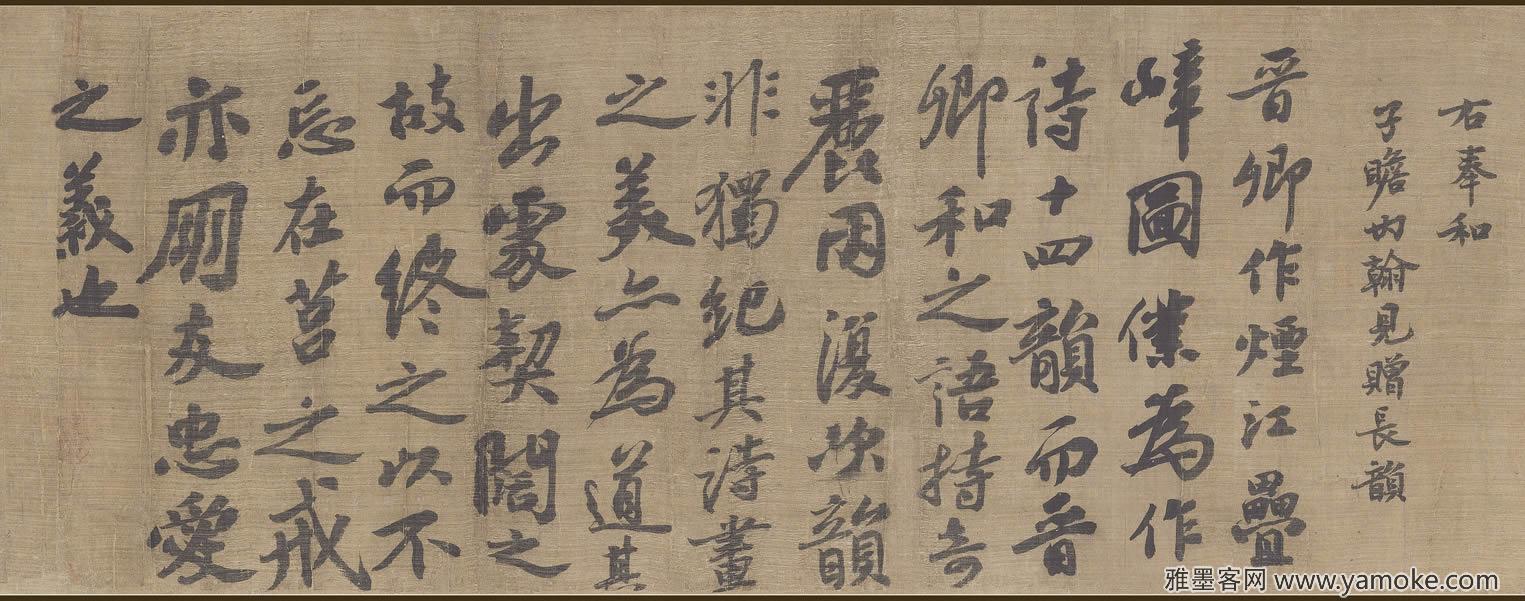 右奉和
子瞻内翰見贈長韻
晋卿作煙江疊
嶂圖僕為作
詩十四韻而晋
卿和之語特奇
麗因復次韻
非獨紀其詩畫
之美亦為道其
出處契闊之
故而終之以不
忘在莒之戒
亦朋友忠愛
之義也
雅墨客网 www.yamoke.com